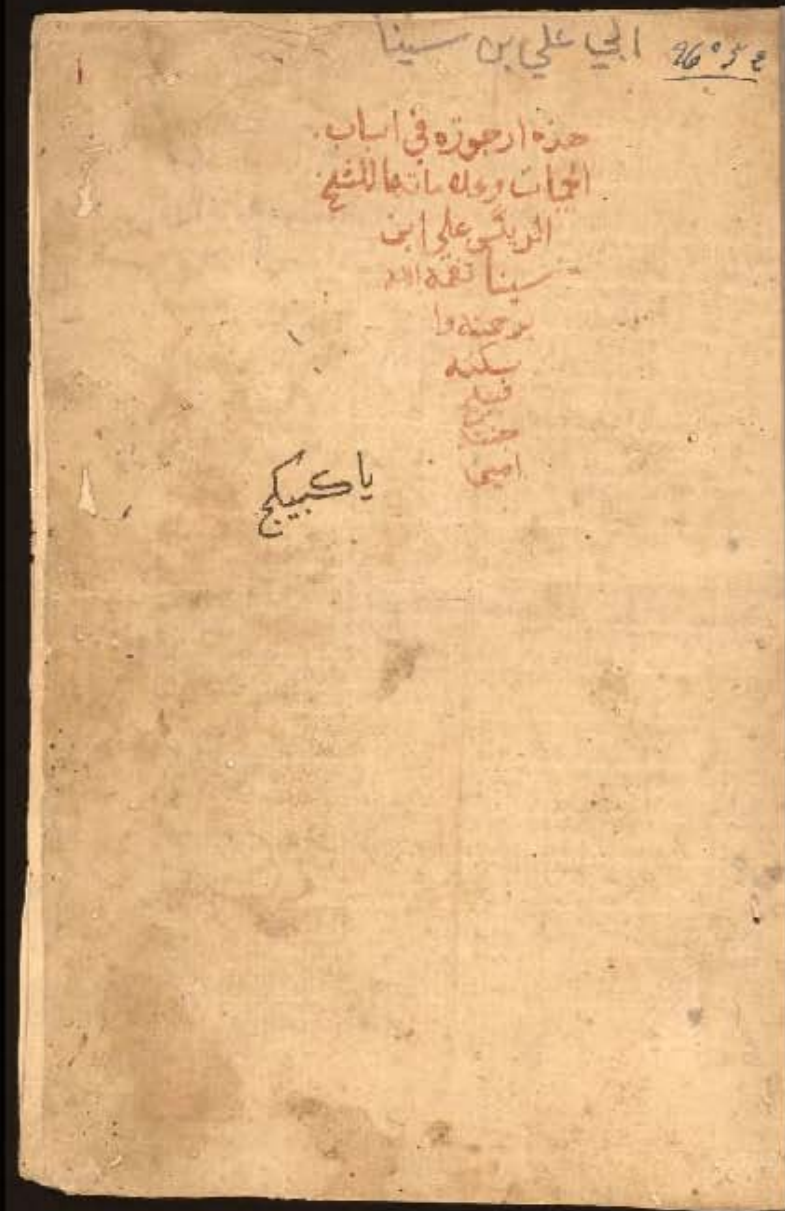 علي بن سينا
هذه ارجوزه في اسباب
الحميات وعلاماتها للشيخ
الريس علي ابن
سينا تغمده الله
برحمته وا
سكنه
فسيح
جنته
امين
يا كبيكج